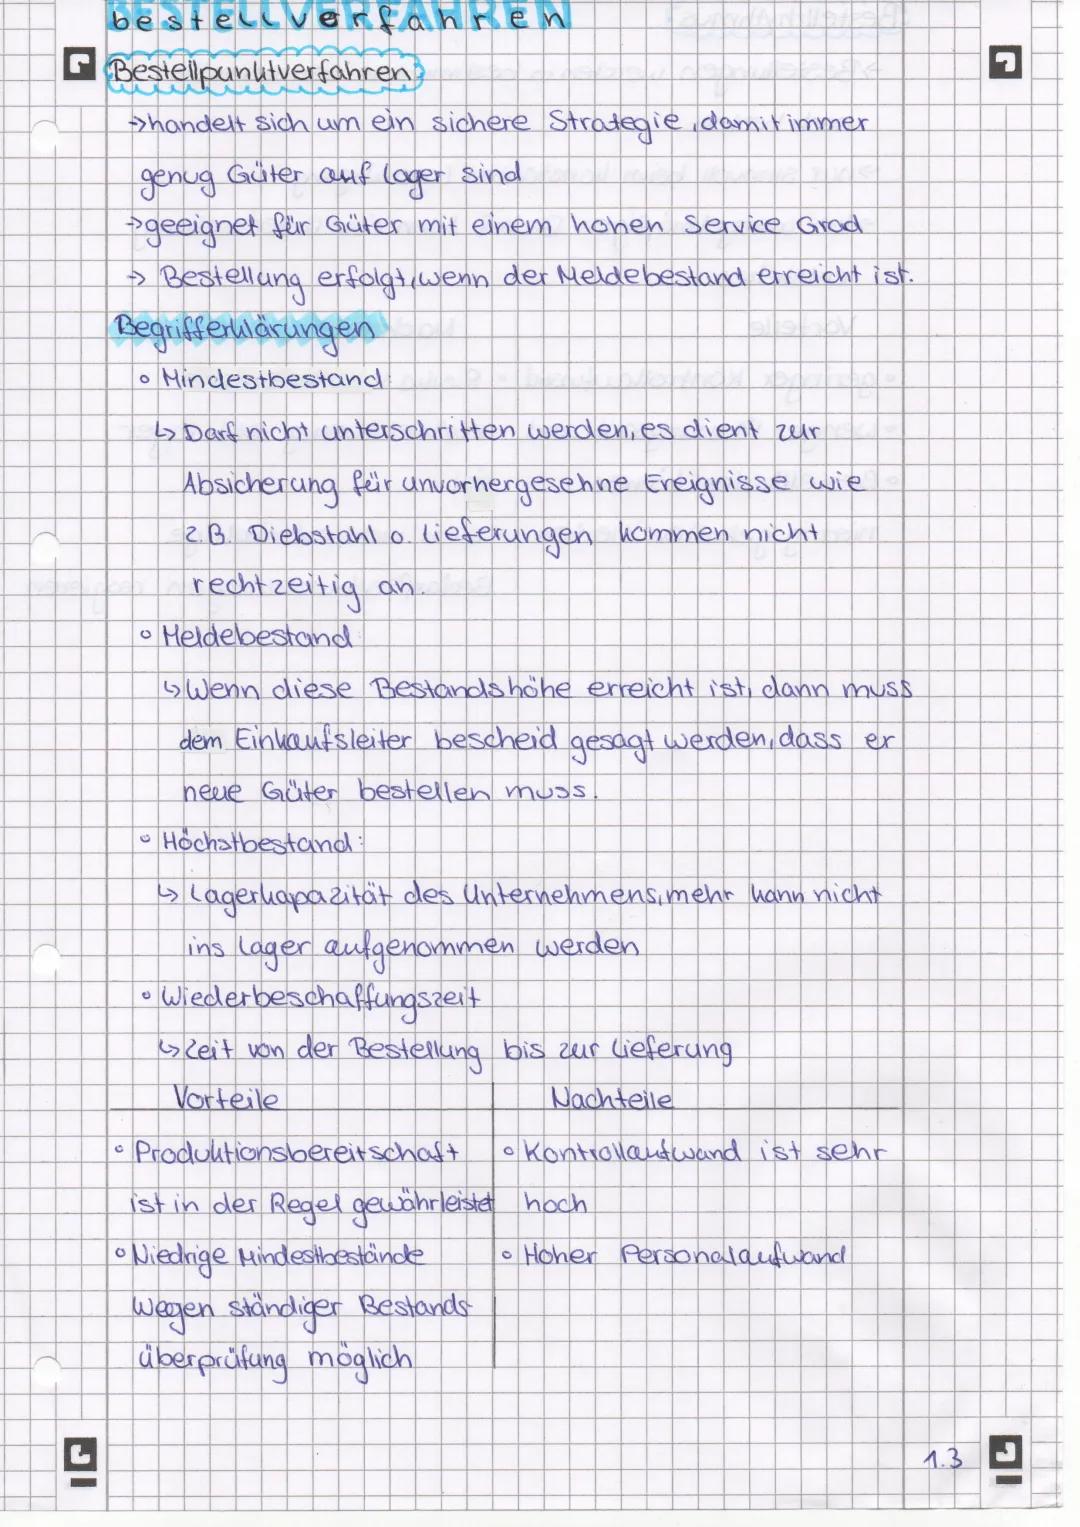 BESTELLVERFAHREN
bestellverfahren
Bestellpunktverfahren?
→handelt sich um ein sichere Strategie, damit immer
genug Güter auf Lager sind
→geeignet für Güter mit einem hohen Service Grad
→ Bestellung erfolgt, wenn der Meldebestand erreicht ist.
Begrifferklärungen
∘ Mindestbestand:
↳ Darf nicht unterschritten werden, es dient zur
Absicherung für unvorhergesehne Ereignisse wie
z.B. Diebstahl o. Lieferungen kommen nicht
rechtzeitig an.
∘ Meldebestand
↳ Wenn diese Bestandshöhe erreicht ist, dann muss
dem Einkaufsleiter bescheid gesagt werden, dass er
neue Güter bestellen muss.
∘ Höchstbestand:
↳ Lagerkapazität des Unternehmens, mehr kann nicht
ins Lager aufgenommen werden
∘ Wiederbeschaffungszeit
↳ Zeit von der Bestellung bis zur Lieferung
Vorteile Nachteile
∘ Produktionsbereitschaft ∘ Kontrollaufwand ist sehr
ist in der Regel gewährleistet hoch
∘ Niedrige Mindestbestände ∘ Hoher Personalaufwand
wegen ständiger Bestands-
überprüfung möglich
1.3